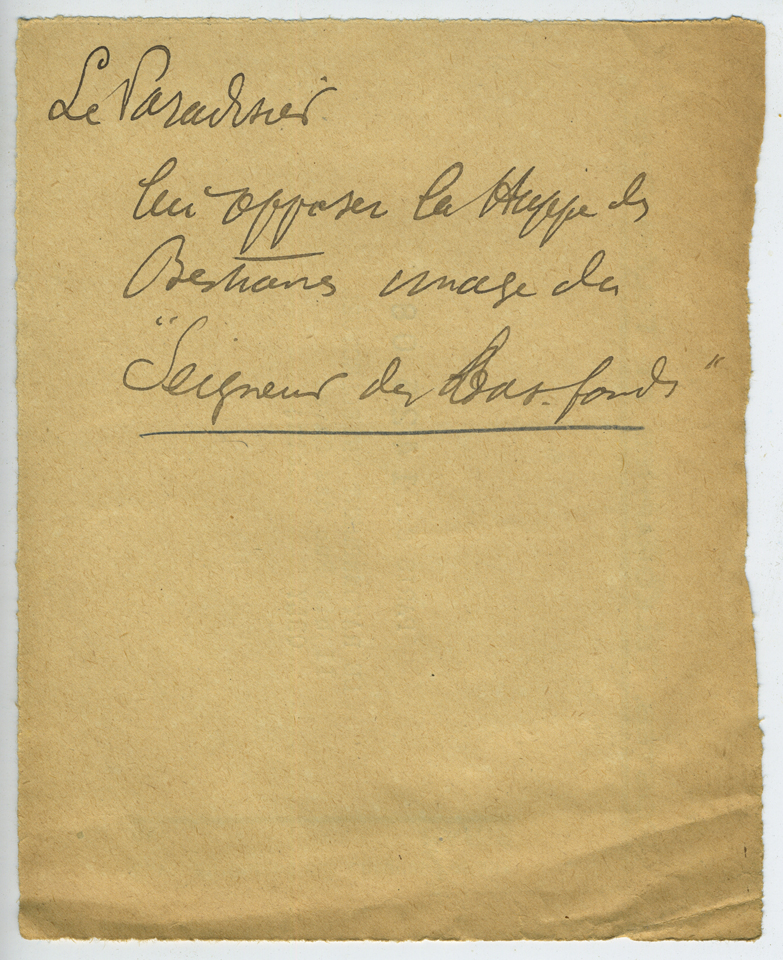 Le Paradisier
lui opposer la Huppe des
Bestiaires image du
"Seigneur des Bas-fonds"